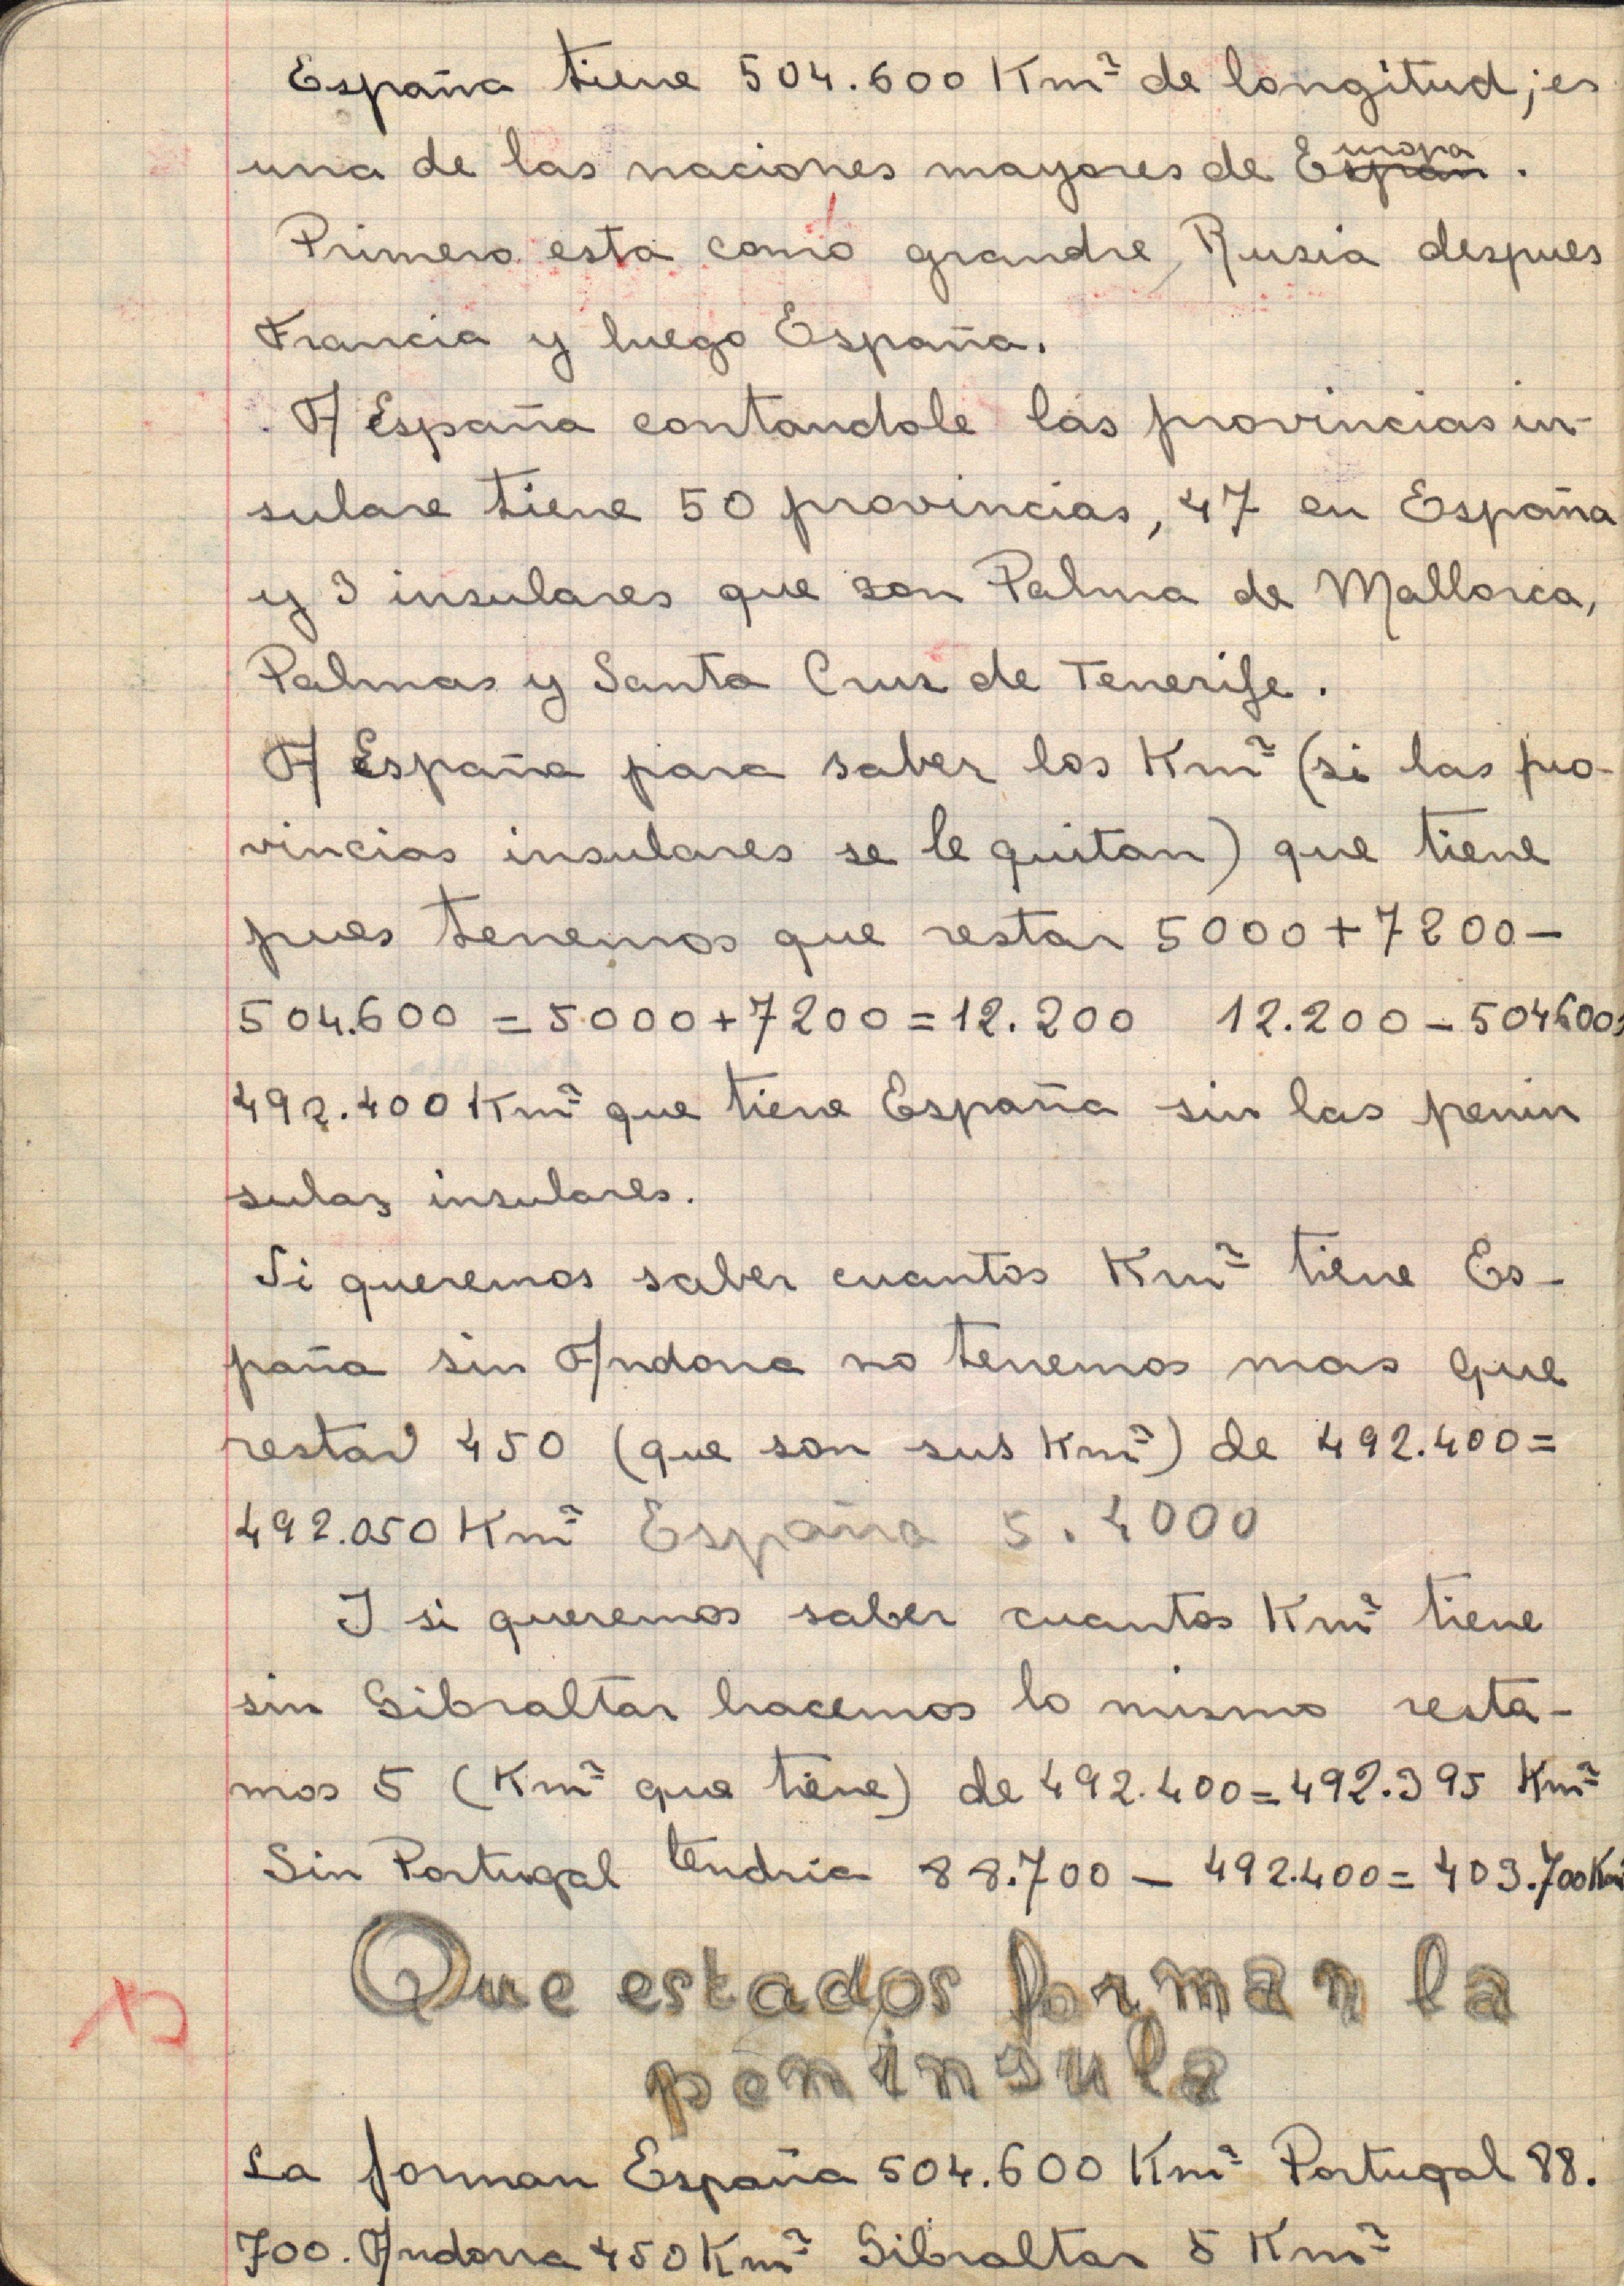 España tiene 504.600 Km² de longitud; es
una de las naciones mayores de Europa.
Primero esta como grandre, Rusia despues
Francia y luego España.
A España contandole las provincias in-
sulare tiene 50 provincias, 47 en España
y 3 insulares que son Palma de Mallorca,
Palmas y Santa Cruz de Tenerife.
A España para saber los Km² (si las pro-
vincias insulares se le quitan) que tiene
pues tenemos que restar 5000+7200-
504.600 = 5000+7200=12.200 12.200-504600=
492.400 Km² que tiene España sin las penin
sulas insulares.
Si queremos saber cuantos Km² tiene Es-
paña sin Andorra no tenemos mas que
restar 450 (que son sus Km²) de 492.400=
492.050 Km² España 5.4000
I si queremos saber cuantos Km² tiene
sin Gibraltar hacemos lo mismo resta-
mos 5 (Km² que tiene) de 492.400=492.395 Km²
Sin Portugal tendria 88.700 - 492.400 = 403.700 Km²
Que estados forman la
peninsula
La forman España 504.600 Km² Portugal 88.
700. Andorra 450 Km² Gibraltar 5 Km²